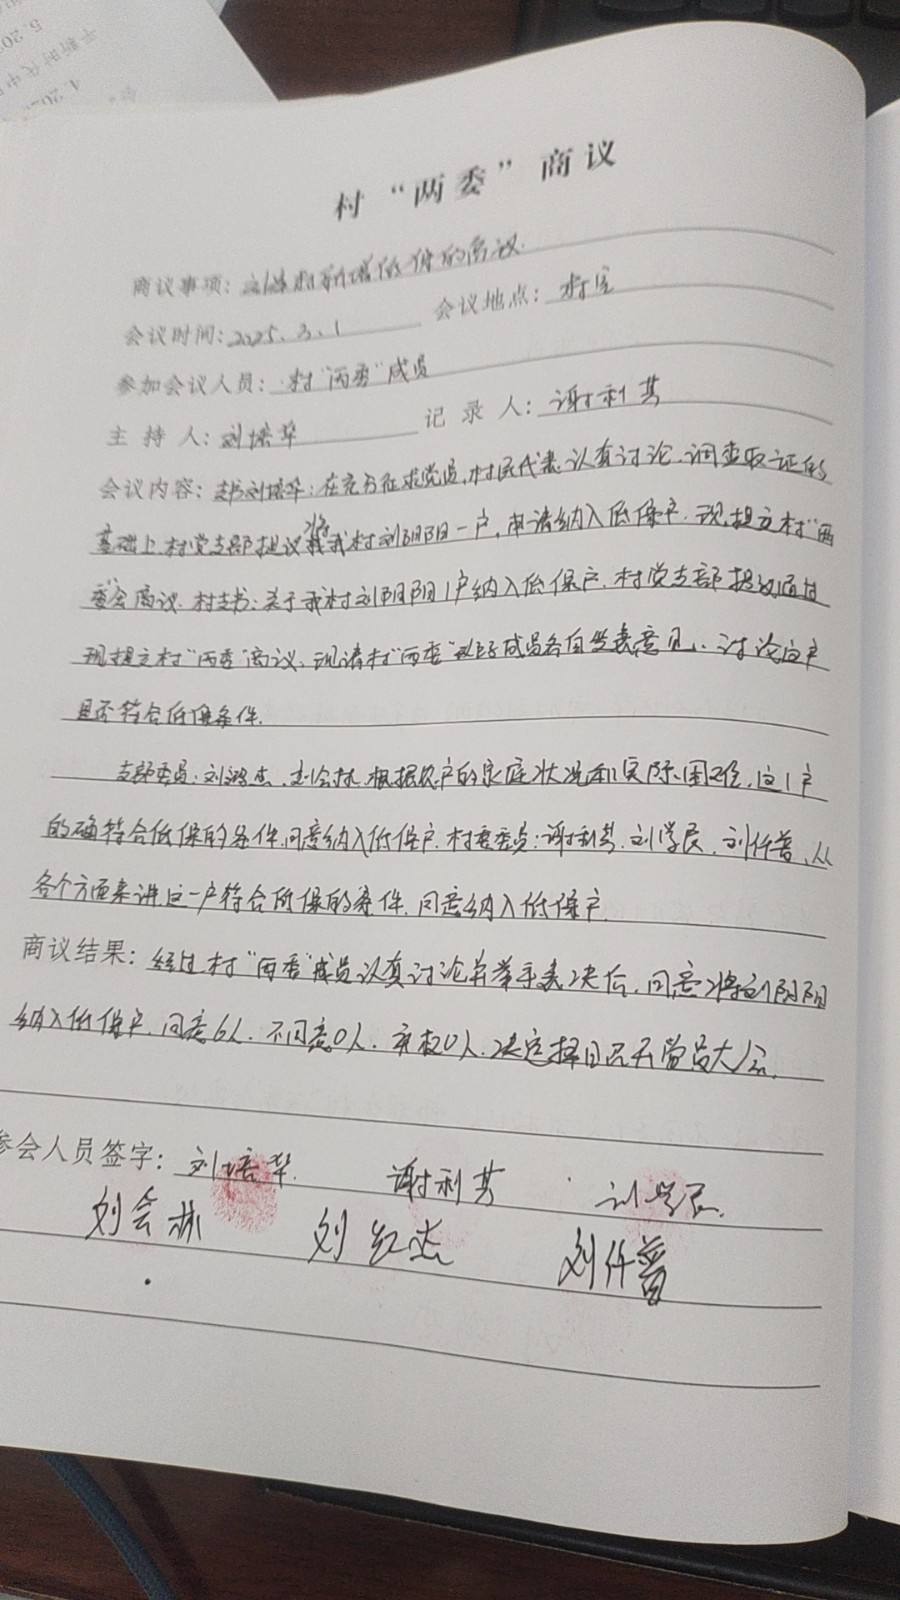 村“两委”商议
商议事项：刘洼村新增低保的商议
会议时间：2025.3.1 会议地点：村室
参加会议人员：村“两委”成员
主持人：刘培华 记录人：谢利芳
会议内容：支书刘培华：在充分征求党员，村民代表，认真讨论，调查取证的
基础上，村党支部提议将我村刘阴阴一户，申请纳入低保户。现提交村“两
委”会商议。村支书：关于我村刘阴阴1户纳入低保户，村党支部提议通过
现提交村“两委”商议，现请村“两委”班子成员各自发表意见，讨论这户
是否符合低保条件。
支部委员：刘鸿杰、刘会林，根据农户的家庭状况和实际困难，这1户
的确符合低保的条件，同意纳入低保户。村委委员：谢利芳、刘学民、刘仟普，从
各个方面来讲这一户符合低保的条件，同意纳入低保户。
商议结果：经过村“两委”成员认真讨论并举手表决后，同意将刘阴阴
纳入低保户，同意6人，不同意0人，弃权0人，决定择日召开党员大会。
参会人员签字：刘培华 谢利芳 刘学民
刘会林 刘红杰 刘仟普